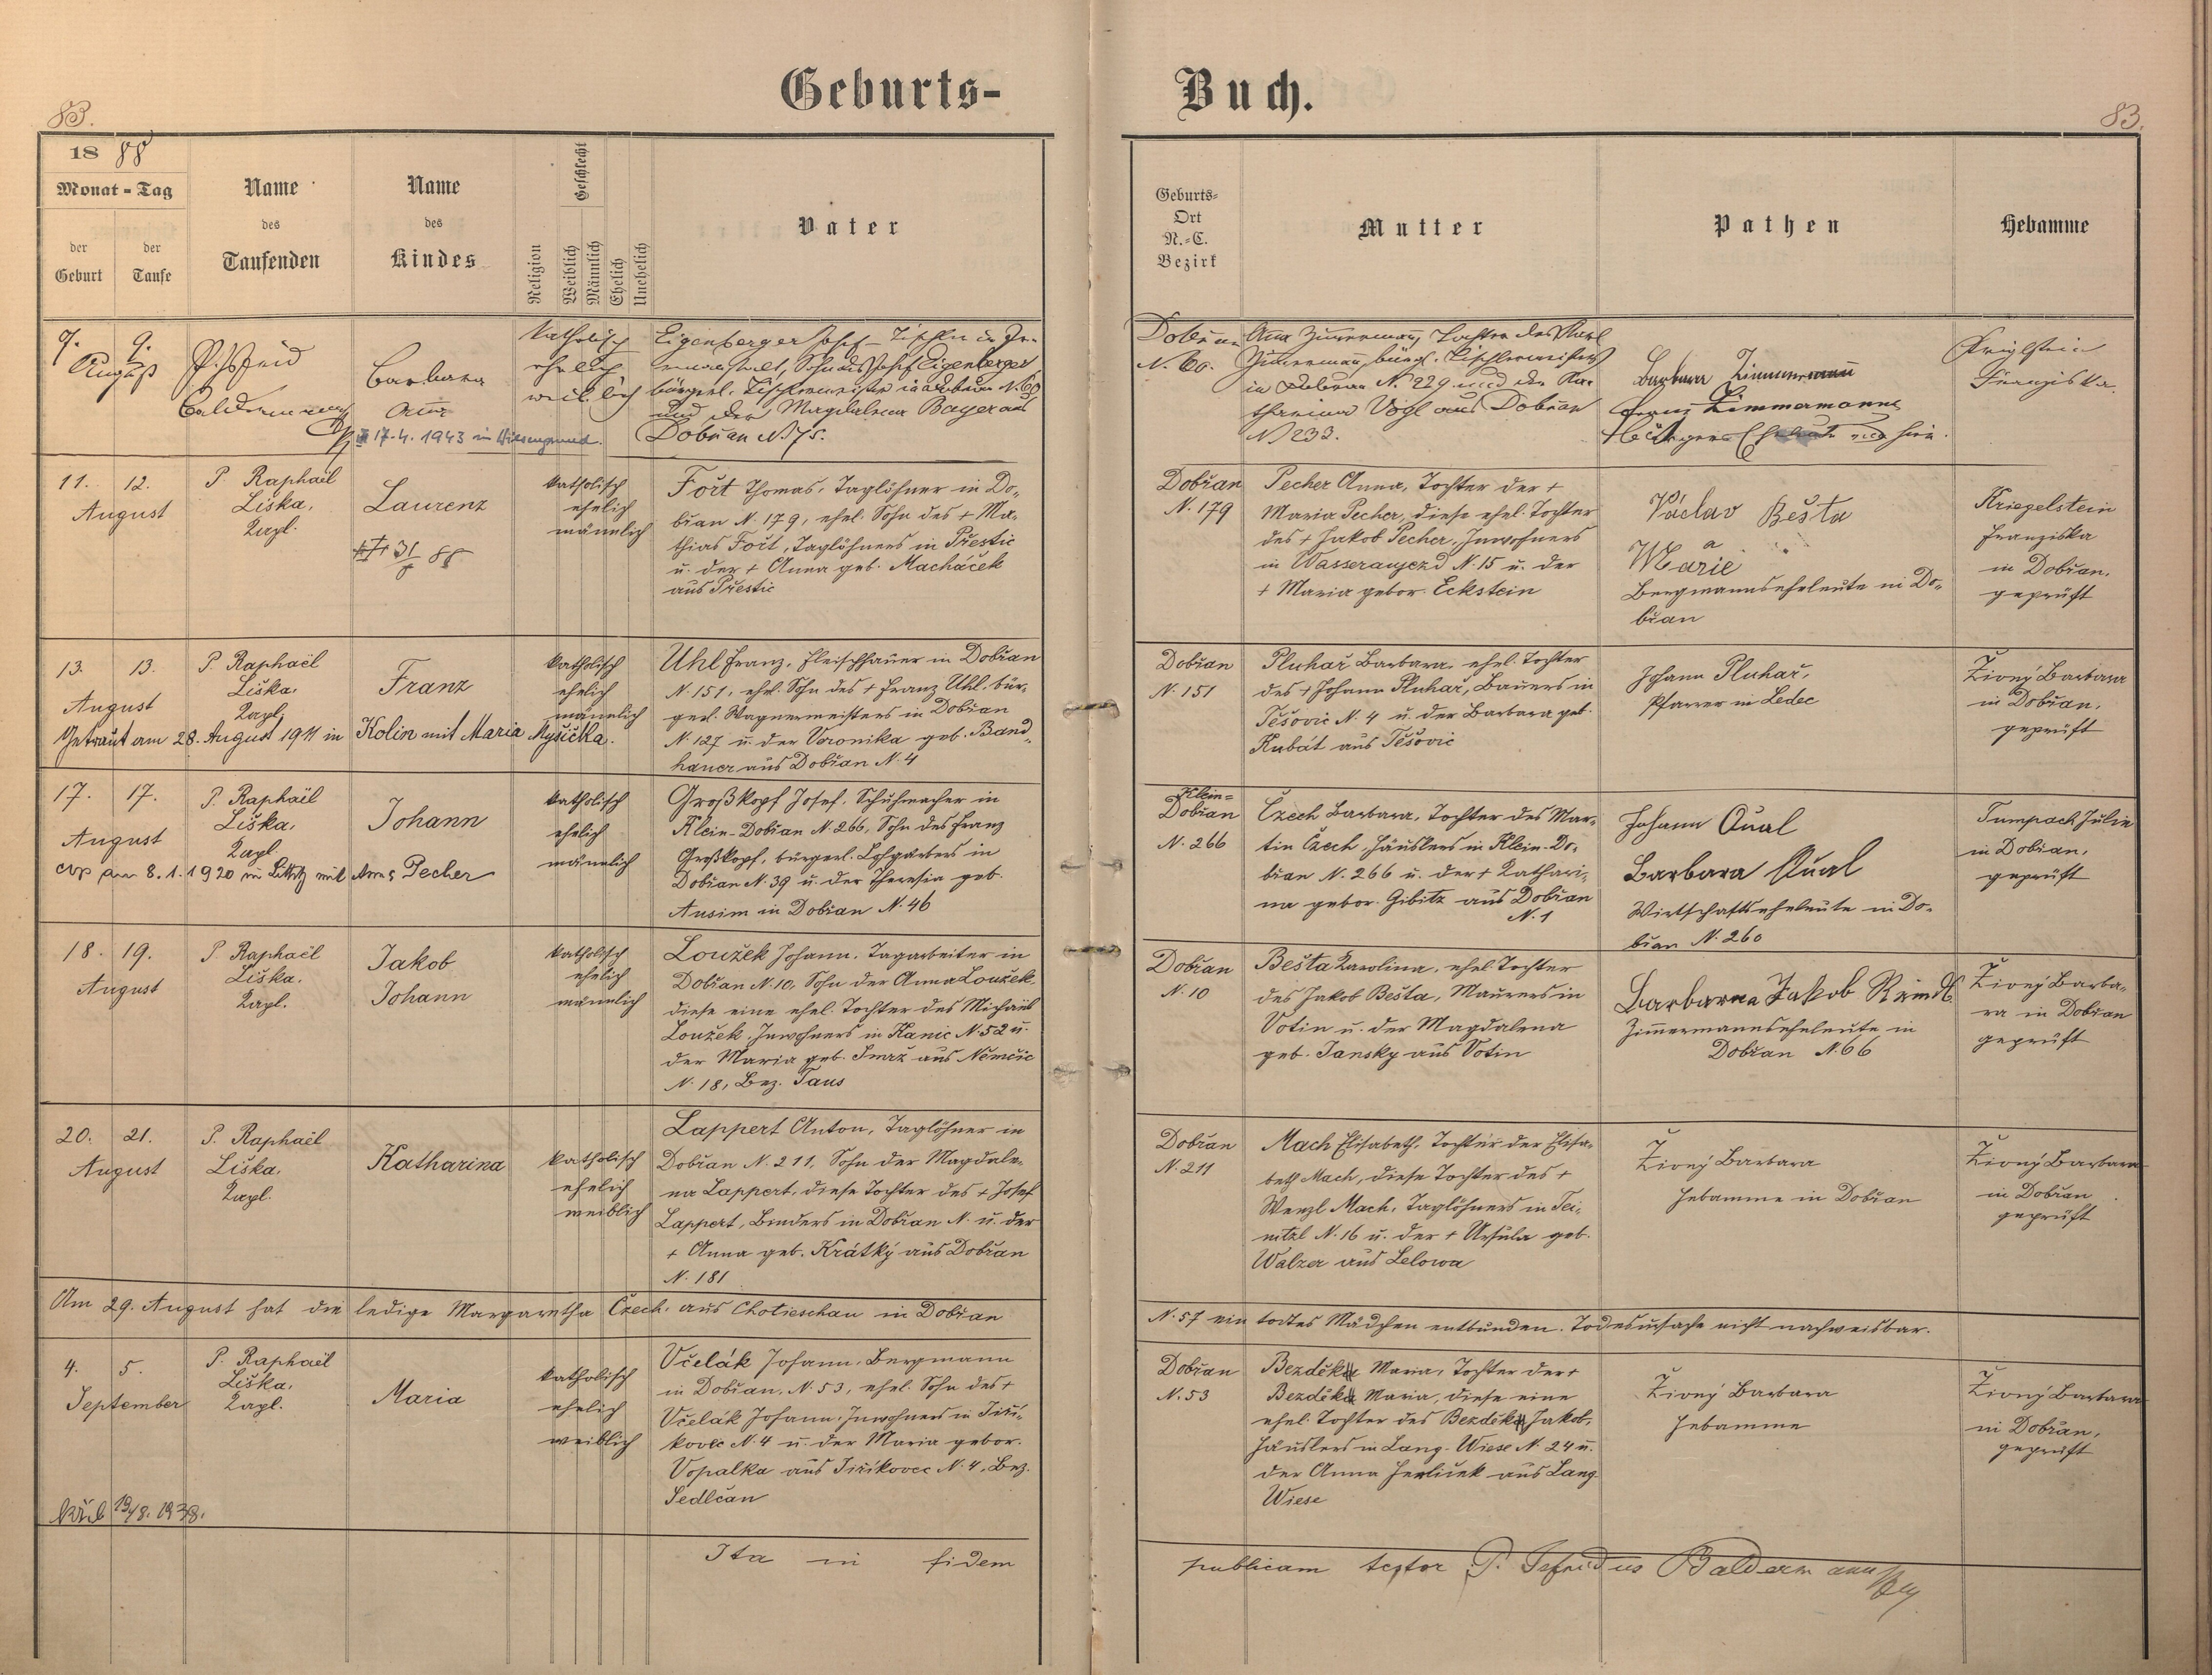 Geburts-
Buch.
83.
83.
18 88
Monat - Tag
der
Geburt
der
Taufe
Name
des
Taufenden
Name
des
Kindes
Religion
Geschlecht
Weiblich
Männlich
Ehelich
Unehelich
Vater
Geburts-
Ort
N.-C.
Bezirk
Mutter
Pathen
Hebamme
7. 9.
August
Barbara
Anna
17.4.1943 in
katholisch
ehelich
weiblich
Eigenberger Josef Tischler in
Sohn des Josef Eigenberger
bürgerl. Tischlermeister in Dobřan N. 60
und der Magdalena Bayer aus
Dobřan N. 75.
Dobřan
N. 60.
Anna Zimmermann, Tochter des Karl
Zimmermann, bürgl. Tischlermeisters
in Dobřan N. 229 und der Ka-
tharina Vogl aus Dobřan
N 233.
Barbara Zimmermann
Franz Zimmermann
Franziska
11. 12.
August
P. Raphaël
Liška,
Kapl.
Laurenz
31/8 88
katholisch
ehelich
männlich
Fořt Thomas, Taglöhner in Do-
břan N. 179, ehel. Sohn des + Ma-
thias Fořt, Taglöhners in Přestic
u. der + Anna geb. Macháček
aus Přestic
Dobřan
N. 179
Pecher Anna, Tochter der +
Maria Pecher, diese ehel. Tochter
des + Jakob Pecher, Inwohners
in Wasseraujezd N. 15 u. der
+ Maria gebor. Eckstein
Václav Bešta
a
Marie
Bergmannseheleute in Do-
břan
Kriegelstein
Franziska
in Dobřan,
geprüft
13. 13.
August
P. Raphaël
Liška,
Kapl.
Franz
Getraut am 28. August 1911 in Kolin mit Maria Myšička.
katholisch
ehelich
männlich
Uhl Franz, Fleischhauer in Dobřan
N. 151, ehel. Sohn des + Franz Uhl, bür-
gerl. Wagnermeisters in Dobřan
N. 127 u. der Veronika geb. Band-
hauer aus Dobřan N. 4
Dobřan
N. 151
Pluhař Barbara, ehel. Tochter
des + Johann Pluhař, Bauers in
Těšovic N. 4 u. der Barbara geb.
Kubát aus Těšovic
Johann Pluhař,
Pfarrer in Ledec
Živný Barbara
in Dobřan,
geprüft
17. 17.
August
P. Raphaël
Liška,
Kapl.
Johann
am 8.1.1920 in Littitz mit Anna Pecher
katholisch
ehelich
männlich
Großkopf Josef, Schuhmacher in
Klein-Dobřan N. 266, Sohn des Franz
Großkopf, bürgerl. Lohgärbers in
Dobřan N. 39 u. der Theresia geb.
Ausim in Dobřan N. 46
Klein-
Dobřan
N. 266
Czech Barbara, Tochter des Mar-
tin Czech, Häuslers in Klein-Do-
břan N. 266 u. der + Kathari-
na gebor. Gibitz aus Dobřan
N. 1
Johann Qual
Barbara Qual
Wirtschaftseheleute in Do-
břan N. 260
Tumpach Julie
in Dobřan,
geprüft
18. 19.
August
P. Raphaël
Liška,
Kapl.
Jakob
Johann
katholisch
ehelich
männlich
Loužek Johann, Tagarbeiter in
Dobřan N. 10, Sohn der Anna Loužek,
diese eine ehel. Tochter des Michael
Loužek, Inwohners in Kanic N. 52 u.
der Maria geb. Smaž aus Němčic
N. 18, Bez. Taus
Dobřan
N. 10
Bešta Karolina, ehel. Tochter
des Jakob Bešta, Maurers in
Votin u. der Magdalena
geb. Jansky aus Votin
Barbara Jakob
Zimmermannseheleute in
Dobřan N. 66
Živný Barba-
ra in Dobřan
geprüft
20. 21.
August
P. Raphaël
Liška,
Kapl.
Katharina
katholisch
ehelich
weiblich
Lappert Anton, Taglöhner in
Dobřan N. 211, Sohn der Magdale-
na Lappert, diese Tochter des + Josef
Lappert, Binders in Dobřan N. u. der
+ Anna geb. Krátký aus Dobřan
N. 181
Dobřan
N. 211
Mach Elisabeth, Tochter der Elisa-
beth Mach, diese Tochter des +
Wenzl Mach, Taglöhners in Tei-
nitzl N. 16 u. der + Ursula geb.
Walzer aus Lelowa
Živný Barbara
Hebamme in Dobřan
Živný Barbara
in Dobřan
geprüft
Am 29. August hat die ledige Margaretha Czech, aus Chotieschau in Dobřan
N. 57 ein todtes Mädchen entbunden. Todesursache nicht nachweisbar.
4. 5.
September
P. Raphaël
Liška,
Kapl.
Maria
katholisch
ehelich
weiblich
Včelák Johann, Bergmann
in Dobřan, N. 53, ehel. Sohn des +
Včelák Johann, Inwohners in Jiří-
kovec N. 4 u. der Maria gebor.
Vopalka aus Jiříkovec N. 4, Bez.
Sedlčan
Dobřan
N. 53
Bezděk Maria, Tochter der +
Bezděk Maria, diese eine
ehel. Tochter des Bezděk Jakob,
Häuslers in Lang-Wiese N. 24 u.
der Anna Herliček aus Lang-
Wiese
Živný Barbara
Hebamme
Živný Barbara
in Dobřan,
geprüft
19/8. 1938.
Ita in fidem
publicam testor P. Sefridus Baldermann